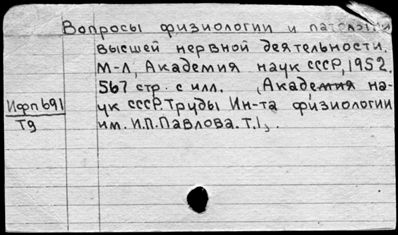 Вопросы физиологии и патологии
высшей нервной деятельности.
М-Л, Академия наук СССР, 1952.
567 стр. с илл. (Академия на-
ук СССР. Труды Ин-та физиологии
им. И.П.Павлова. Т.1).
Ифп691
Т9